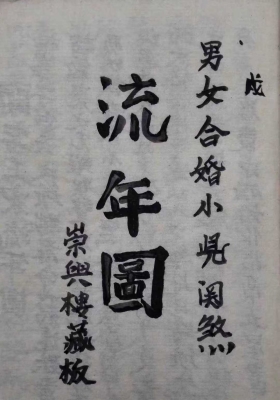 戊
男女合婚小児関煞
流年圖
崇興樓藏板